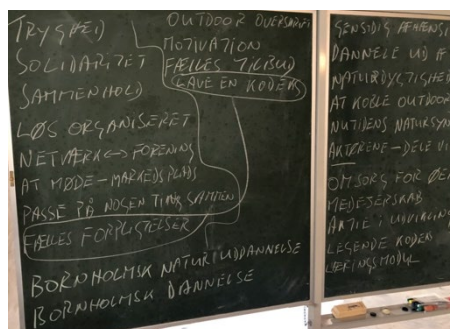 TRYGHED
SOLIDARITET
SAMMENHOLD
LØS ORGANISERET
NETVÆRK ↔ FORENING
AT MØDE - MARKEDSPLADS
PASSE PÅ NOGEN TING SAMMEN
FÆLLES FORPLIGTELSER
BORNHOLMSK NATURUDDANNELSE
BORNHOLMSK DANNELSE
OUTDOOR
MOTIVATION
FÆLLES TILBUD
LAVE EN KODEKS
GENSIDIG
DANNELSE UD AF
NATURDYGTIGHED
AT KOBLE OUTDOOR
NUTIDENS NATURSYN
AKTØRENE - DELE
OMSORG FOR
MEDEJERSKAB
AKTIE I UDVIKLING
LEGENDE KODEN
LÆRINGSMODUL